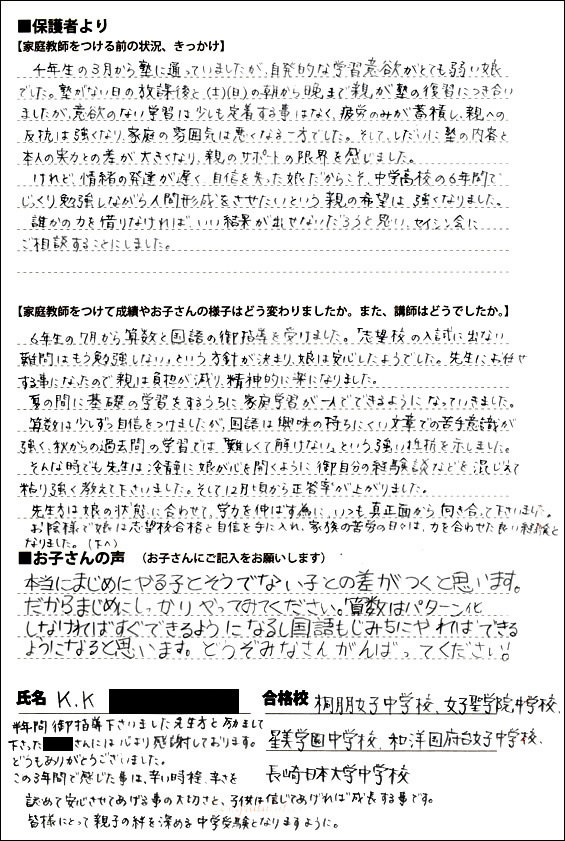 ■保護者より
【家庭教師をつける前の状況、きっかけ】
4年生の3月から塾に通っていましたが、自発的な学習意欲がとても弱い娘
でした。塾がない日の放課後と(土)(日)の朝から晩まで親が塾の復習につき合い
ましたが、意欲のない学習は少しも定着する事はなく、疲労のみが蓄積し、親への
反抗は強くなり、家庭の雰囲気は悪くなる一方でした。そして、しだいに塾の内容と
本人の実力との差が大きくなり、親のサポートの限界を感じました。
けれど、情緒の発達が遅く自信を失った娘だからこそ、中学高校の6年間で
じっくり勉強しながら人間形成をさせたいという親の希望は強くなりました。
誰かの力を借りなければ、いい結果が出せないだろうと思い、セイシン会に
ご相談することにしました。
【家庭教師をつけて成績やお子さんの様子はどう変わりましたか。また、講師はどうでしたか。】
6年生の7月から算数と国語の御指導を受けました。「志望校の入試に出ない
難問はもう勉強しない」という方針が決まり、娘は安心したようでした。先生にお任せ
する事になったので親は負担が減り、精神的に楽になりました。
夏の間に基礎の学習をするうちに家庭学習が一人でできるようになっていきました。
算数は少しずつ自信をつけましたが、国語は興味の持ちにくい文章での苦手意識が
強く、秋からの過去問の学習では「難しくて解けない」という強い抵抗を示しました。
そんな時でも先生は、冷静に娘が心を開くように御自分の経験談などを混じえて
粘り強く教えて下さいました。そして12月頃から正答率が上がりました。
先生方は娘の状態に合わせて、学力を伸ばす為に、いつも真正面から向き合って下さいました。
お陰様で娘は志望校合格と自信を手に入れ、家族の苦労の日々は、力を合わせた良い経験と
なりました。(下へ)
■お子さんの声 （お子さんにご記入をお願いします）
本当にまじめにやる子とそうでない子との差がつくと思います。
だからまじめにしっかりやってみてください。算数はパターン化
しなければすぐできるようになるし国語もじみちにやればできる
ようになると思います。どうぞみなさんがんばってください!
氏名 K.K
合格校 桐朋女子中学校、女子聖学院中学校、
星美学園中学校、和洋国府台女子中学校、
長崎日本大学中学校
半年間御指導下さいました先生方と励まして
下さった さんには心より感謝しております。
どうもありがとうございました。
この3年間で感じた事は、辛い時程、辛さを
認めて安心させてあげる事の大切さと、子供は信じてあげれば成長する事です。
皆様にとって親子の絆を深める中学受験となりますように。